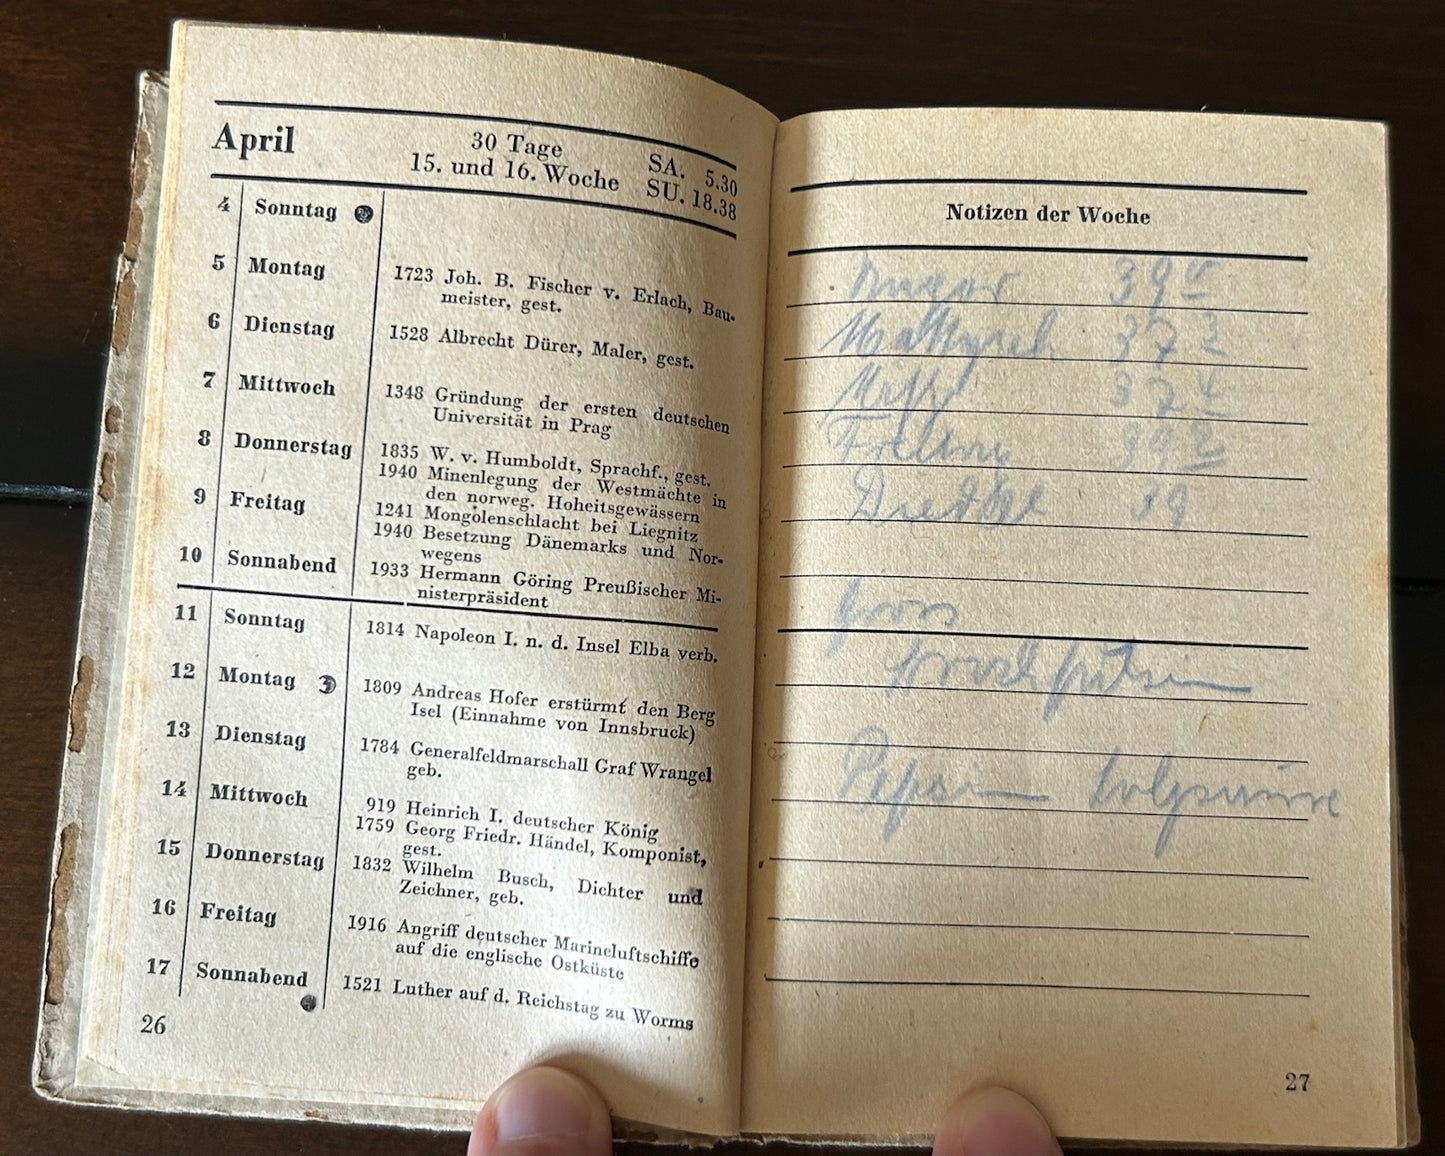 April
30 Tage
15. und 16. Woche
SA. 5.30
SU. 18.38
4 Sonntag
5 Montag 1723 Joh. B. Fischer v. Erlach, Bau-
meister, gest.
6 Dienstag 1528 Albrecht Dürer, Maler, gest.
7 Mittwoch 1348 Gründung der ersten deutschen
Universität in Prag
8 Donnerstag 1835 W. v. Humboldt, Sprachf., gest.
1940 Minenlegung der Westmächte in
den norweg. Hoheitsgewässern
9 Freitag 1241 Mongolenschlacht bei Liegnitz
1940 Besetzung Dänemarks und Nor-
wegens
10 Sonnabend 1933 Hermann Göring Preußischer Mi-
nisterpräsident
11 Sonntag 1814 Napoleon I. n. d. Insel Elba verb.
12 Montag 1809 Andreas Hofer erstürmt den Berg
Isel (Einnahme von Innsbruck)
13 Dienstag 1784 Generalfeldmarschall Graf Wrangel
geb.
14 Mittwoch 919 Heinrich I. deutscher König
1759 Georg Friedr. Händel, Komponist,
gest.
15 Donnerstag 1832 Wilhelm Busch, Dichter und
Zeichner, geb.
16 Freitag 1916 Angriff deutscher Marineluftschiffe
auf die englische Ostküste
17 Sonnabend 1521 Luther auf d. Reichstag zu Worms
26
Notizen der Woche
39
37
37
39
39
27